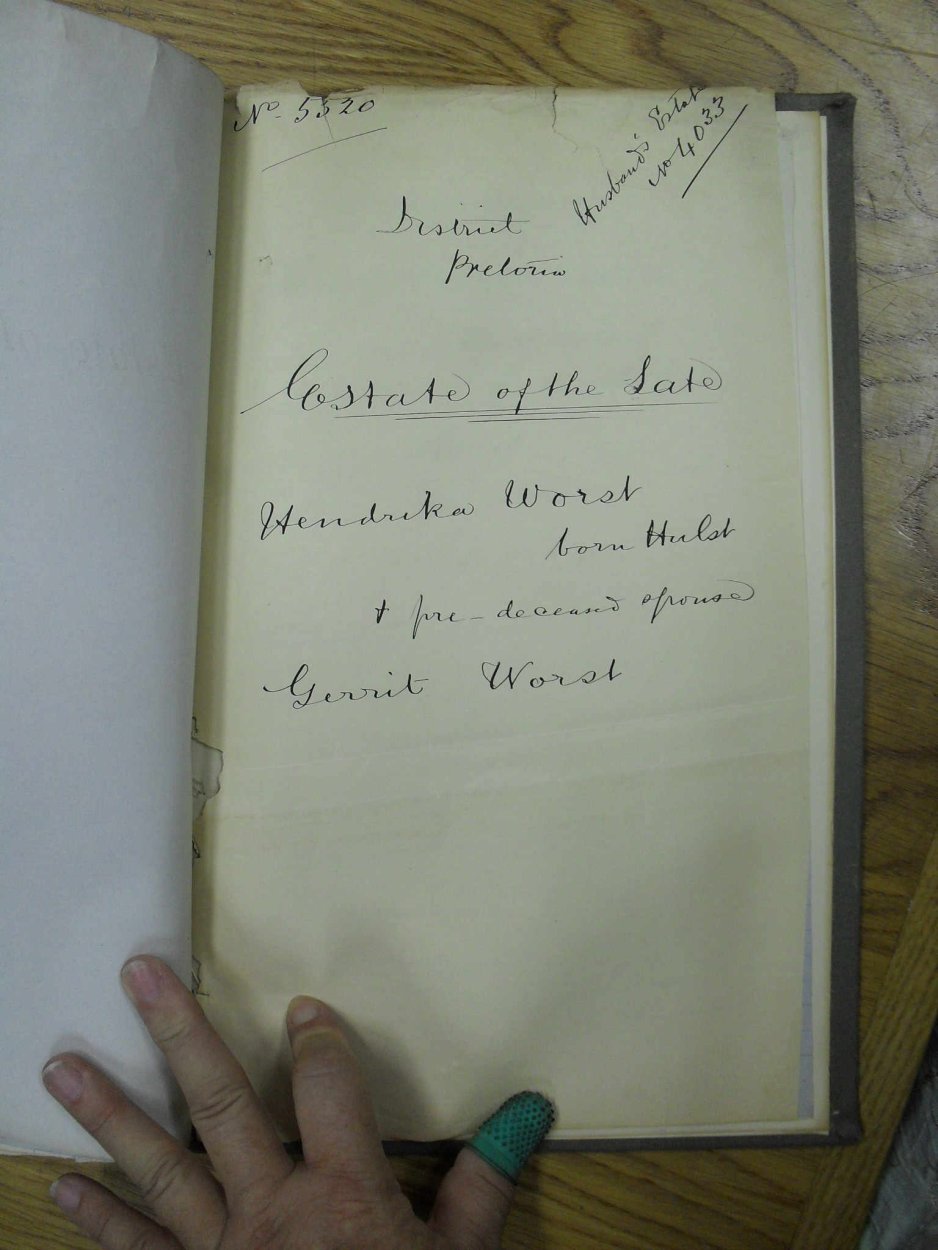 No. 5320
Husband's Estate
No 4033
District
Pretoria
Estate of the Late
Hendrika Worst
born Hulst
+ pre-deceased spouse
Gerrit Worst